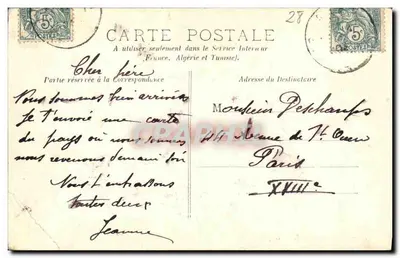 28
CARTE POSTALE
A utiliser seulement dans le Service Intérieur
(France, Algérie et Tunisie).
Partie réservée à la Correspondance
Adresse du Destinataire
Cher père
Nous sommes bien arrivées
Je t'envoie une carte
du pays où nous sommes
nous revenons demain soir
Nous t'embrassons
toutes deux
Jeanne
Monsieur Deschamps
Avenue de St Ouen
Paris
XVIIIe